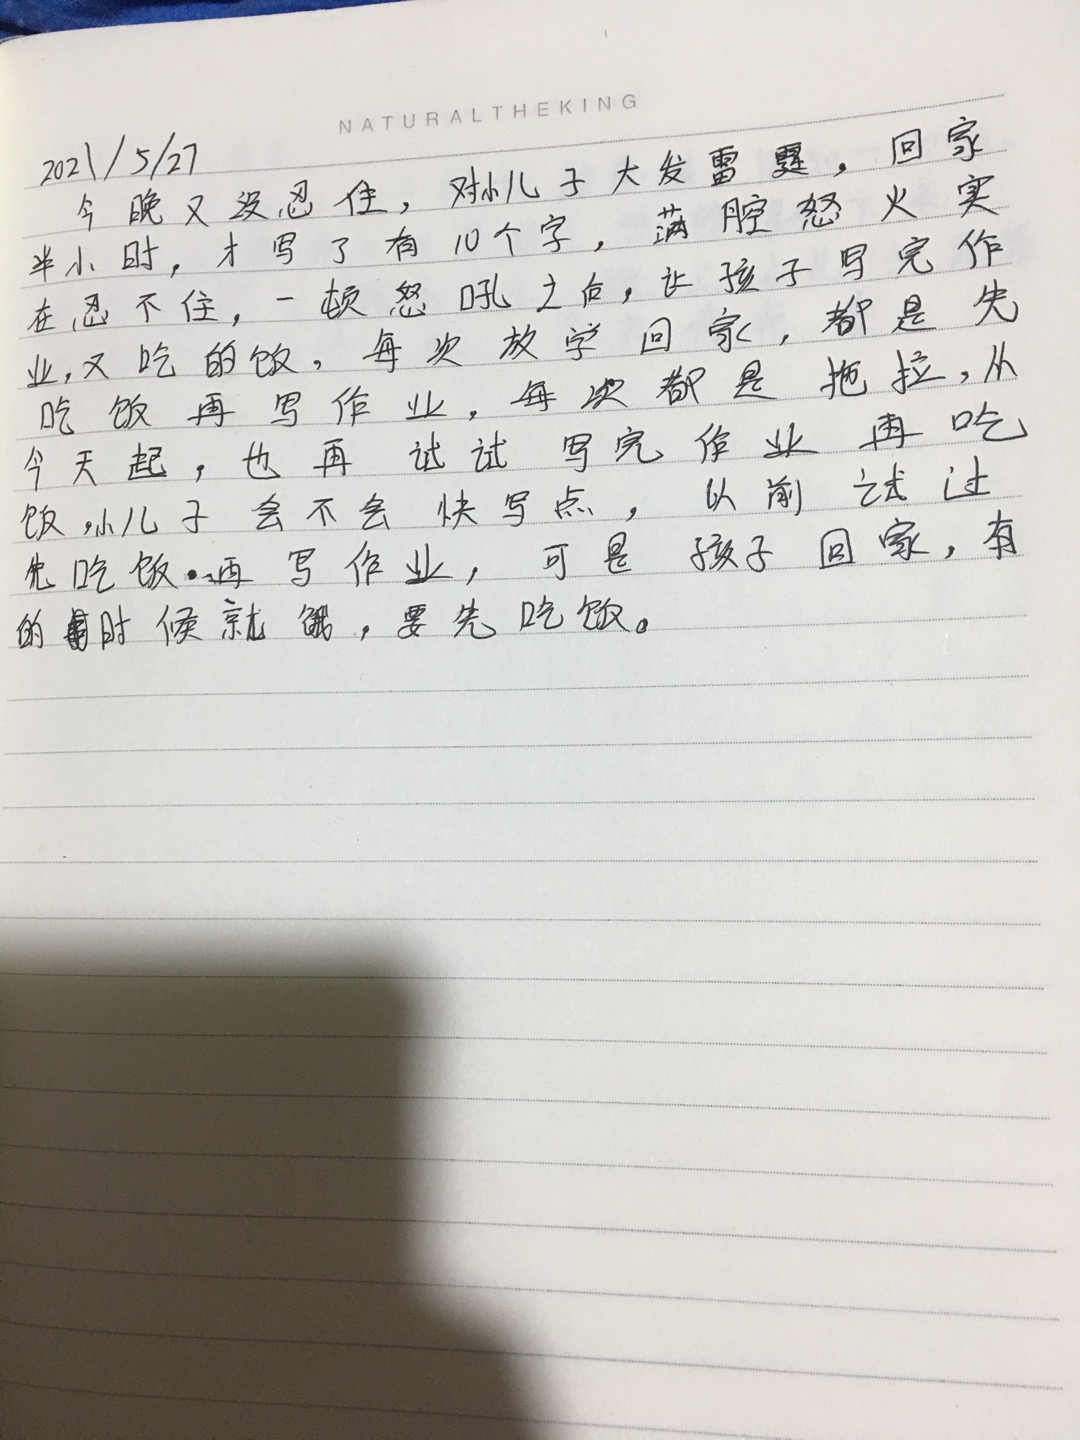 NATURALTHEKING
2021/5/27
今晚又没忍住，对小儿子大发雷霆，回家
半小时，才写了有10个字，满腔怒火实
在忍不住，一顿怒吼之后，让孩子写完作
业，又吃的饭，每次放学回家，都是先
吃饭再写作业，每次都是拖拉，从
今天起，也再试试写完作业再吃
饭，小儿子会不会快写点，以前试过
先吃饭.再写作业，可是孩子回家，有
的时候就饿，要先吃饭。